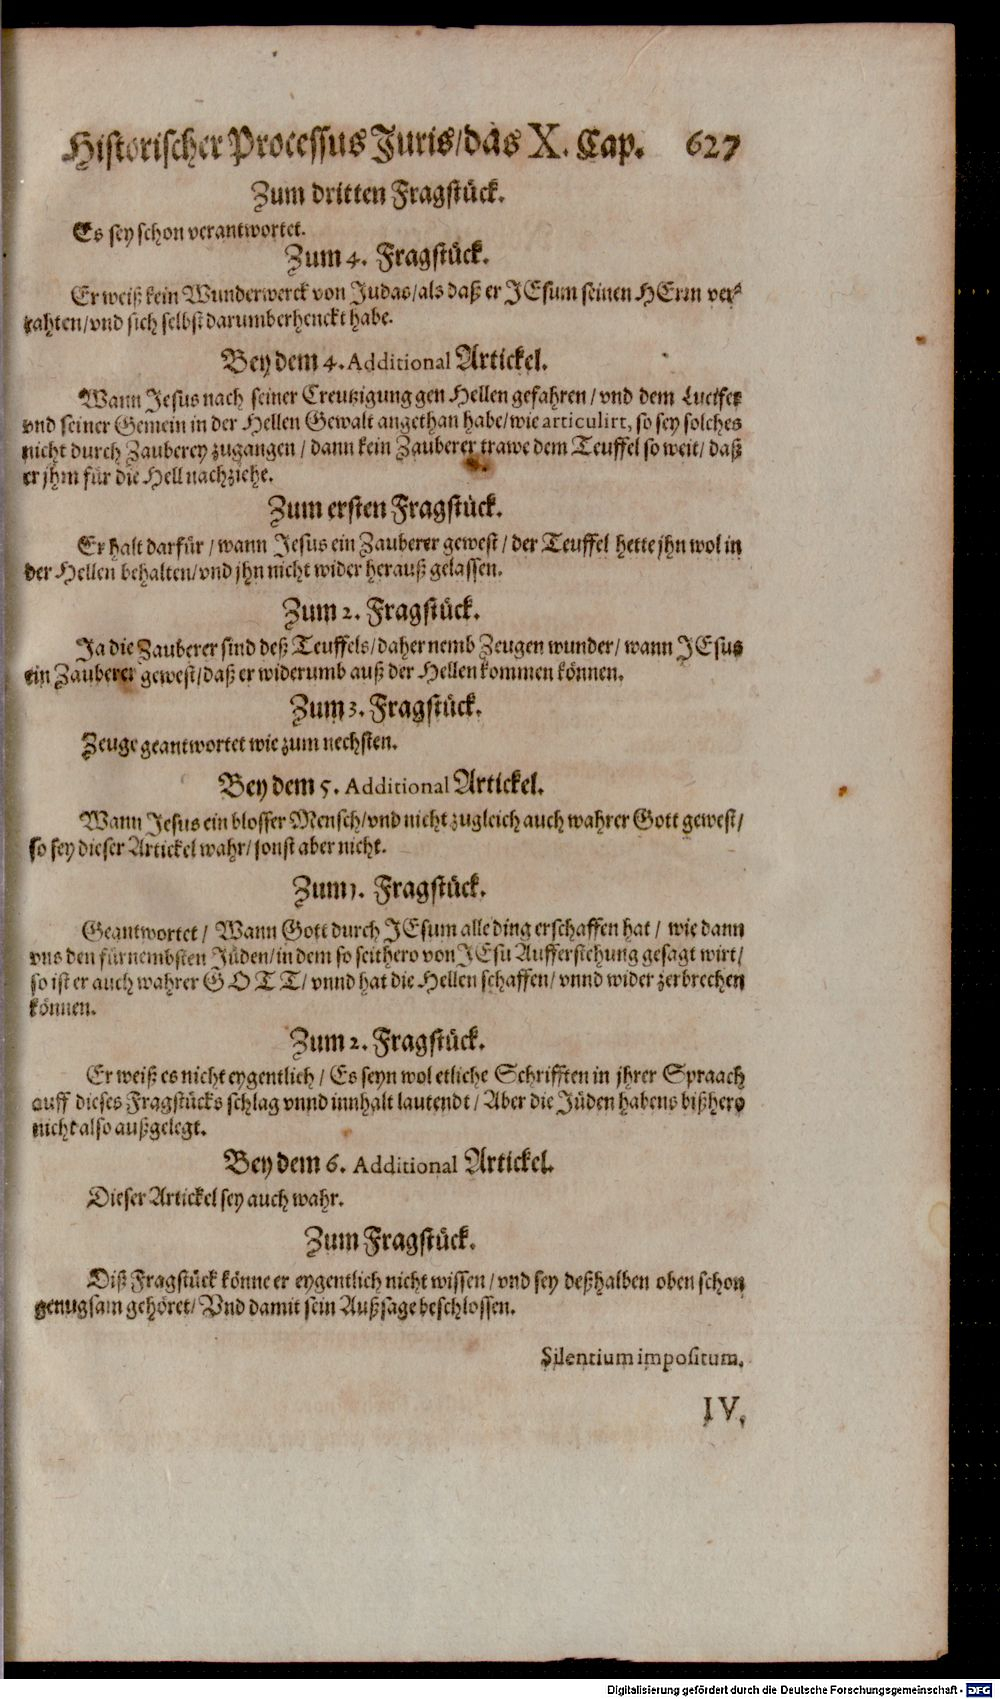 Historischer Processus Juris/das X. Cap. 627
Zum dritten Fragstück.
Es sey schon verantwortet.
Zum 4. Fragstück.
Er weiß kein Wunderwerck von Judas/als daß er JEsum seinen HErrn ver-
rahten/vnd sich selbst darumb erhenckt habe.
Bey dem 4. Additional Artickel.
Wann Jesus nach seiner Creutzigung gen Hellen gefahren/vnd dem Lucifer
vnd seiner Gemein in der Hellen Gewalt angethan habe/wie articulirt, so sey solches
nicht durch Zauberey zugangen/dann kein Zauberer trawe dem Teuffel so weit/daß
er jhm für die Hell nachziehe.
Zum ersten Fragstück.
Er halt darfür/wann Jesus ein Zauberer gewest/der Teuffel hette jhn wol in
der Hellen behalten/vnd jhn nicht wider herauß gelassen.
Zum 2. Fragstück.
Ja die Zauberer sind deß Teuffels/daher nemb Zeugen wunder/wann JEsus
ein Zauberer gewest/daß er widerumb auß der Hellen kommen können.
Zum 3. Fragstück.
Zeuge geantwortet wie zum nechsten.
Bey dem 5. Additional Artickel.
Wann Jesus ein blosser Mensch/vnd nicht zugleich auch wahrer Gott gewest/
so sey dieser Artickel wahr/sonst aber nicht.
Zum 1. Fragstück.
Geantwortet/Wann Gott durch JEsum alle ding erschaffen hat/wie dann
vns den fürnembsten Jüden/in dem so seithero von JEsu Aufferstehung gesagt wirt/
so ist er auch wahrer GOTT/vnnd hat die Hellen schaffen/vnnd wider zerbrechen
können.
Zum 2. Fragstück.
Er weiß es nicht eygentlich/Es seyn wol etliche Schrifften in jhrer Spraach
auff dieses Fragstücks schlag vnnd innhalt lautendt/Aber die Jüden habens bißhero
nicht also außgelegt.
Bey dem 6. Additional Artickel.
Dieser Artickel sey auch wahr.
Zum Fragstück.
Diß Fragstück könne er eygentlich nicht wissen/vnd sey deßhalben oben schon
genugsam gehöret/Vnd damit sein Außsage beschlossen.
Silentium impositum.
IV.
Digitalisierung gefördert durch die Deutsche Forschungsgemeinschaft - DFG